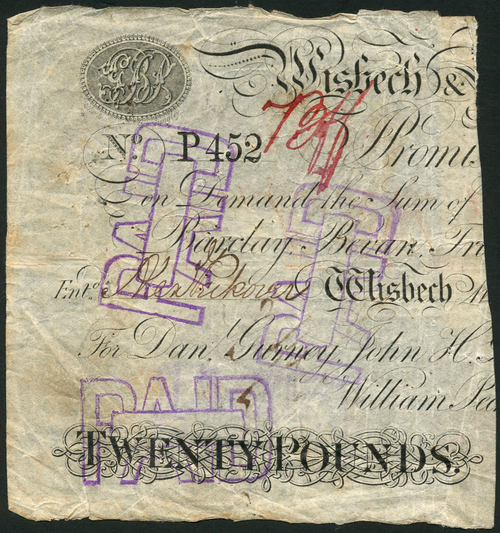 Wisbech &
No. P452 I Promi
on Demand the Sum of
Barclay, Bevan, Tri
Entd. Wisbech
For Dan. Gurney, John H.
William Pec
TWENTY POUNDS.
PAID
PAID
PAID